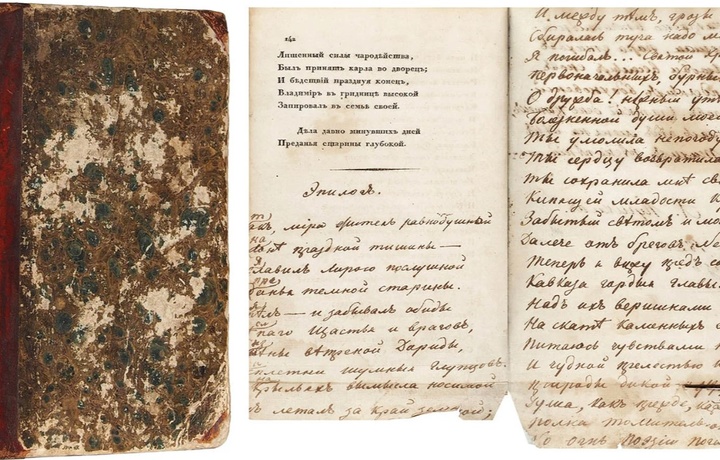 142
Лишенный силы чародѣйства,
Былъ принятъ карла во дворецъ;
И бѣдствій празднуя конецъ,
Владиміръ въ гридницѣ высокой
Запировалъ въ семьѣ своей.
Дѣла давно минувшихъ дней
Преданья старины глубокой.
Эпилогъ.
міра житель равнодушный
праздной тишины —
славилъ лирою послушной
темной старины.
— и забывалъ обиды
щастья и враговъ,
вѣтреной Дориды,
сплетни шумныхъ глупцовъ.
крыльяхъ вымысла носимой
леталъ за край земной;
И между тѣмъ, грозы
Сбиралась туча надо мно
Я погибалъ... Святой
первоначальныхъ бурныхъ
О дружба! нѣжный утѣ
Болѣзненной души мое
Ты умолила непогоду
Ты сердцу возвратила
Ты сохранила мнѣ св
Кипящей младости
Забытый свѣтомъ и мо
Далече отъ бреговъ Не
Теперь я вижу предъ со
Кавказа гордыя главы.
Надъ ихъ вершинами
На скатѣ каменныхъ
Питаюсь чувствами
И чудной прелестью
природы дикой
Душа, какъ прежде,
полна томительно
Но огнь поэзіи пога